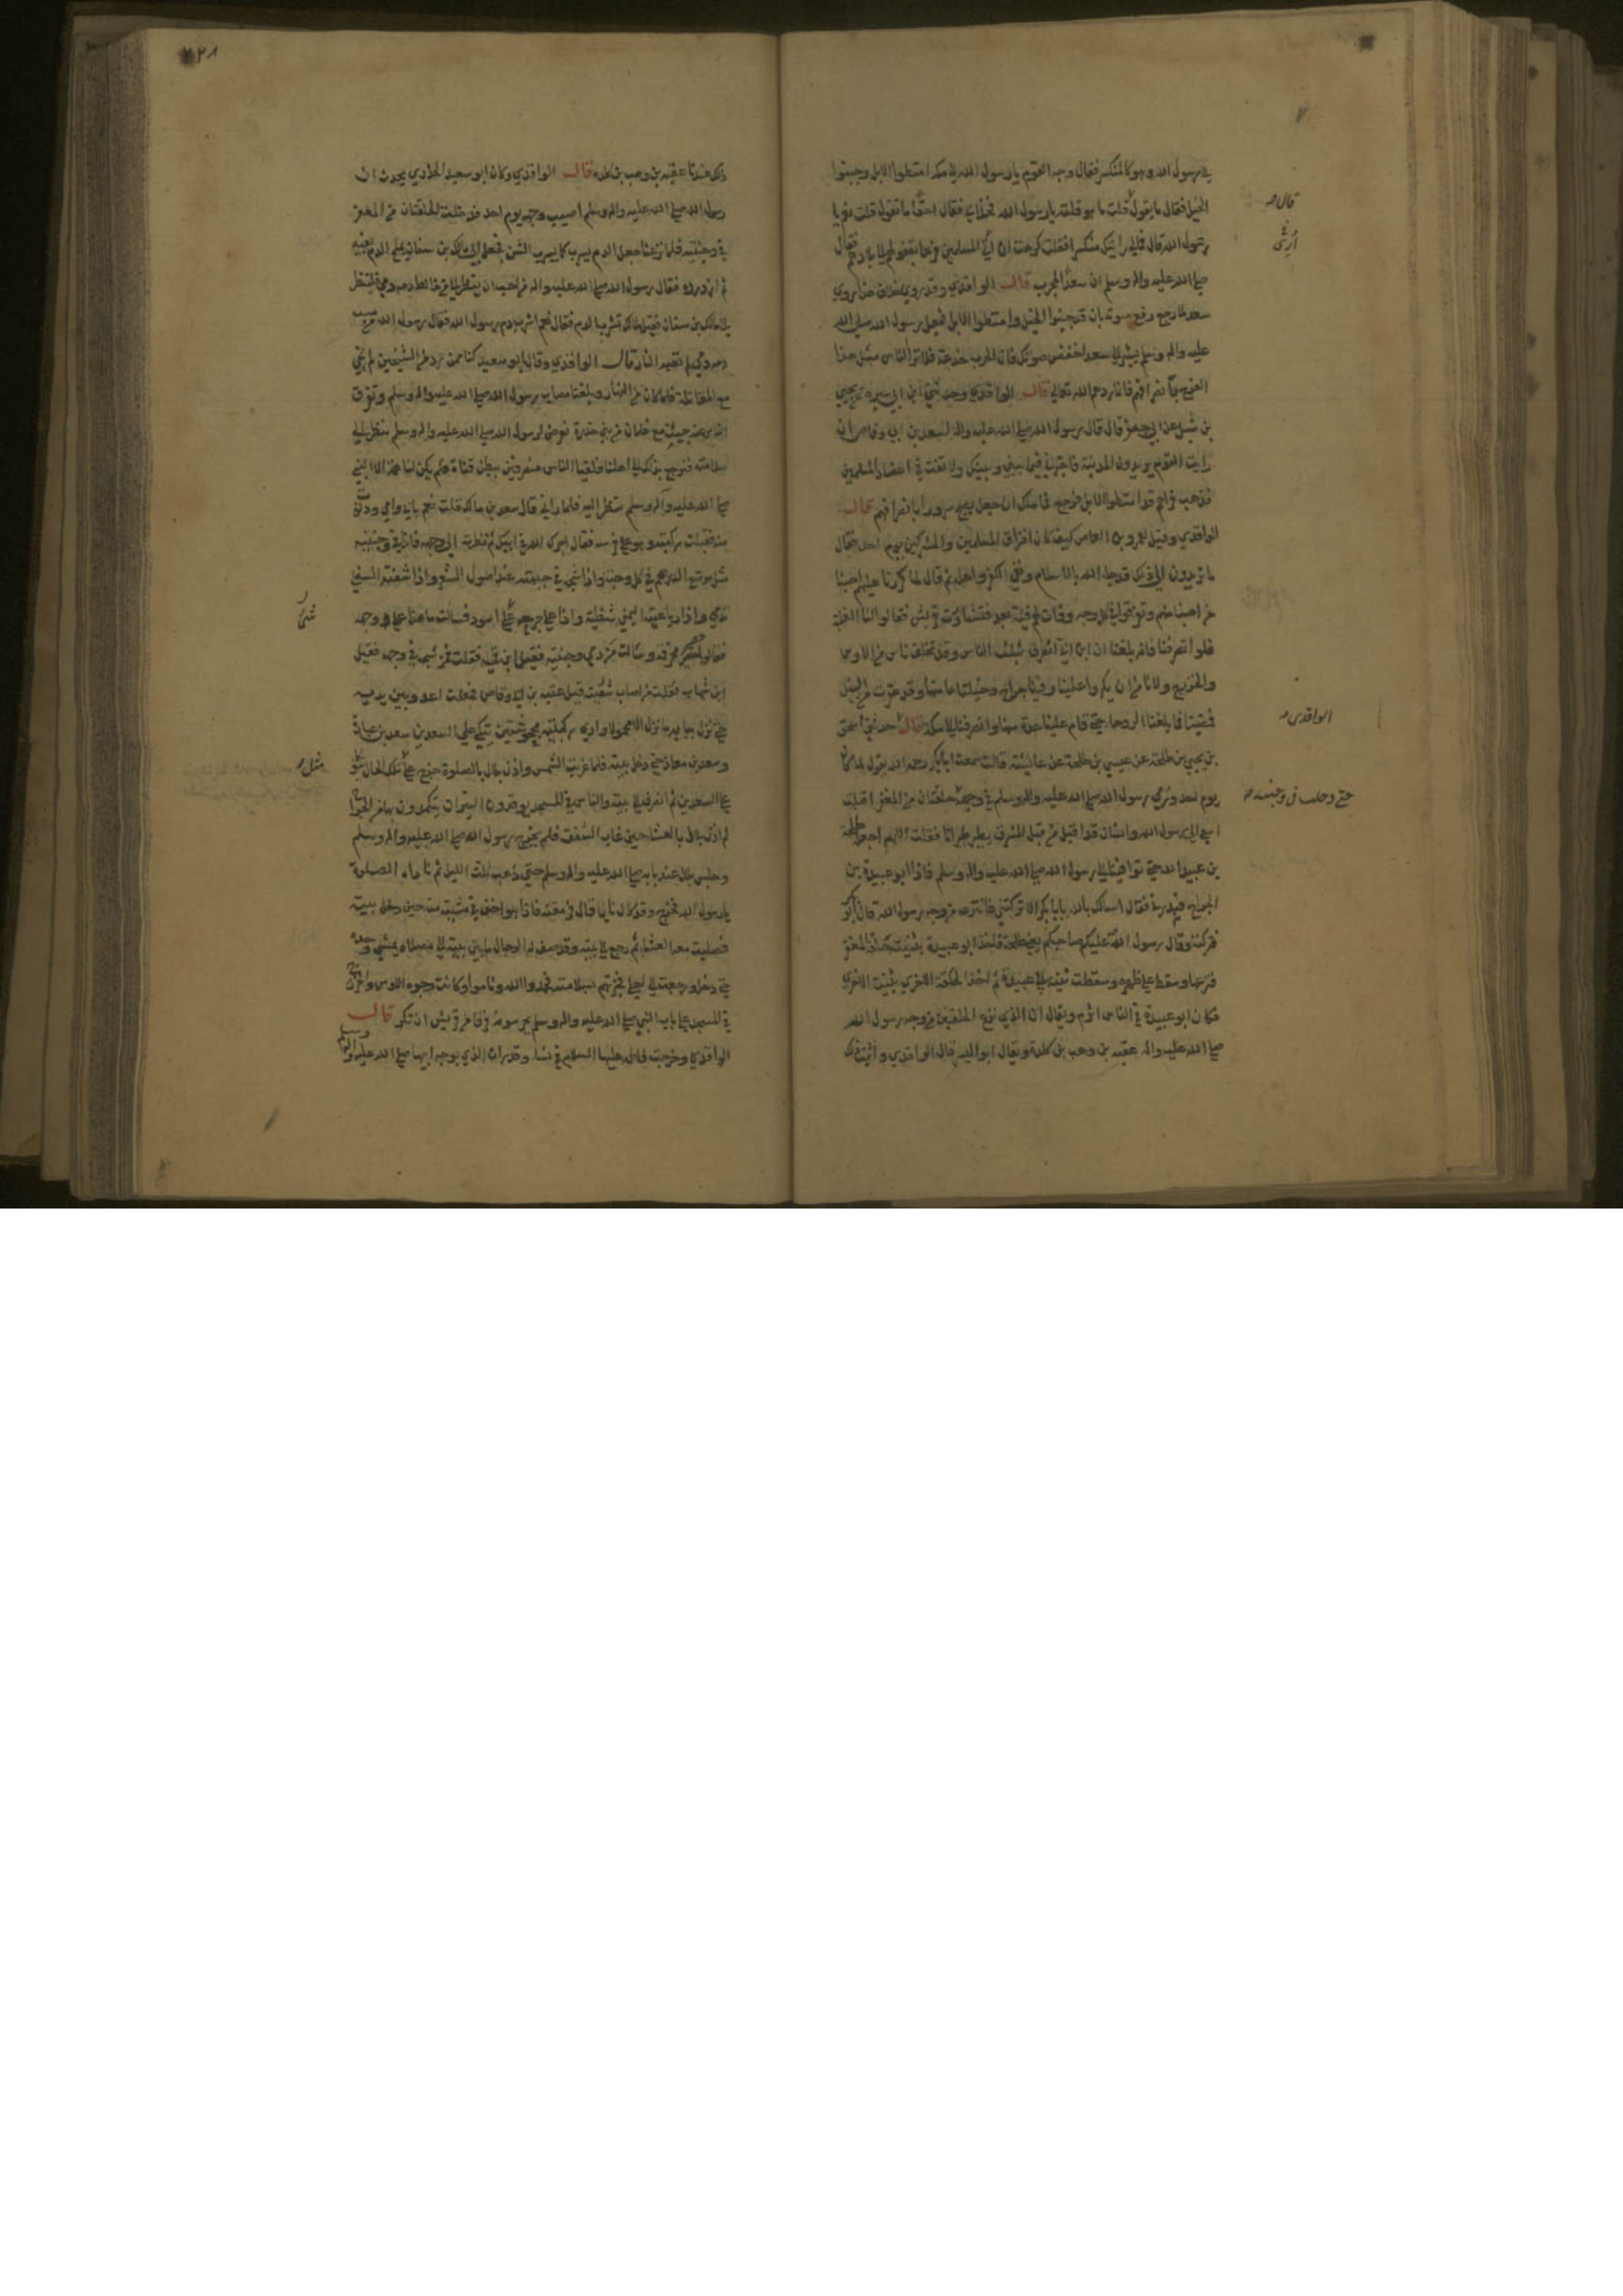 الي رسول الله وهو كالمنكسر فقال وجه القوم يا رسول الله الي مكة امتطوا الابل وجنبوا
الخيل فقال ما يقول قلت ما هو قلته يا رسول الله فخلا بي فقال احقا ما تقول قلت نعم يا
رسول الله قال فمالي رايتك منكسرا فقلت كرهت ان اتي المسلمين فرحا بقفولهم الي بلادهم فقال
صلي الله عليه واله وسلم ان سعدا لمجرب قال الواقدي وقد روي خلاف هذا روي
سعد لما رجع رفع صوته بان قد جنبوا الخيل وامتطوا الابل فجعل رسول الله صلي الله
عليه واله وسلم يشير الي سعد اخفض صوتك فان الحرب خدعة فلا تر الناس مثل هذا
الفرح بانصرافهم فانما ردهم الله تعالي قال الواقدي وحدثني ابن ابي سبرة عن يحيي
بن شبل عن ابي جعفر قال قال رسول الله صلي الله عليه واله لسعد بن ابي وقاص ان
رايت القوم يريدون المدينة فاخبرني فيما بيني وبينك ولا تفت في اعضاد المسلمين
فذهب فراهم قد امتطوا الابل فرجع فما ملك ان جعل يصيح سرورا بانصرافهم قال
الواقدي وقيل لعمرو بن العاص كيف كان افتراق المسلمين والمشركين يوم احد فقال
ما تريدون الي ذلك قد جاء الله بالاسلام ونفي الكفر واهله ثم قال لما كررنا عليهم اصبنا
من اصبنا منهم وتفرقوا في كل وجه وفاءت لهم فئة بعد فتشاورت قريش فقالوا لنا الغلبة
فلو انصرفنا فانه بلغنا ان ابن ابي انصرف بثلث الناس وقد تخلف ناس من الاوس
والخزرج ولا نامن ان يكروا علينا وفينا جراح وخيلنا عامتها قد عقرت من النبل
فمضينا فما بلغنا الروحا حتي قام علينا عدة منها وانصرفنا الي مكة قال حدثني اسحق
بن يحيي بن طلحة عن عيسي بن طلحة عن عائشة قالت سمعت ابابكر رحمه الله يقول لما كان
يوم احد ورمي رسول الله صلي الله عليه واله وسلم في وجهه حلقتان من المغفر اقبلت
اسعي الي رسول الله وانسان قد اقبل من قبل المشرق يطير طيرانا فقلت اللهم اجعله طلحة
بن عبيد الله حتي توافينا الي رسول الله صلي الله عليه واله وسلم فاذا ابو عبيدة بن
الجراح فبدرني فقال اسالك بالله يا بابكر الا تركتني فانتزعه من وجه رسول الله قال ابو بكر
فتركته وقال رسول الله عليكم صاحبكم يعني طلحة فاخذ ابو عبيدة بثنيته حلقة المغفر
فنزعها وسقط علي ظهره وسقطت ثنية ابي عبيدة ثم اخذ الحلقة الاخري بثنيته الاخري
فكان ابو عبيدة في الناس اثرم ويقال ان الذي نزع الحلقتين من وجه رسول الله
صلي الله عليه واله عقبة بن وهب بن كلدة ويقال ابو اليسر قال الواقدي واثبت ذلك
قال
الواقدي
حتي دخلت في وجنته
٢٢٨
ذلك عندنا عقبه بن وهب بن كلده قال الواقدي وكان ابو سعيد الخدري يحدث ان
رسول الله صلي الله عليه واله وسلم اصيب وجهه يوم احد فدخلت الحلقتان من المغفر
في وجنتيه فلما نزعتا جعل الدم يسرب كما يسرب الشن فجعل ابي مالك بن سنان يملج الدم بفيه
ثم ازدرده فقال رسول الله صلي الله عليه واله من احب ان ينظر الي من خالط دمه دمي فلينظر
الي مالك بن سنان فقيل لمالك تشرب الدم فقال نعم اشرب دم رسول الله فقال رسول الله من مس
دمه دمي لم تصبه النار قال الواقدي وقال ابو سعيد كنا ممن رد من الشيخين لم نجي
مع المقاتلة فلما كان من النهار وبلغنا مصاب رسول الله صلي الله عليه واله وسلم وتفرق
الناس عنه جيت مع غلمان من بني خدرة نعرض لرسول الله صلي الله عليه واله وسلم ننظر الي
سلامته فنرجع بذلك الي اهلنا فلقينا الناس منصرفين ببطن قناة فلم يكن لنا همة الا النبي
صلي الله عليه واله وسلم ننظر اليه فلما راني قال سعد بن مالك قلت نعم بابي وامي ودنوت
منه فقبلت ركبته وهو علي فرسه فقال اجرك الله في ابيك ثم نظرت الي وجهه فاذا في وجنتيه
مثل موضع الدرهم في كل وجنة واذا شجة في جبهته عند اصول الشعر واذا شفته السفلي
تدمي واذا رباعيته اليمني شظية واذا علي جرحه شي اسود فسالت ما هذا علي وجهه
فقالوا حصير محرق وسالت من دمي وجنتيه فقيل ابن قمئة فقلت فمن شجه في وجهه فقيل
ابن شهاب فقلت من اصاب شفته قيل عتبة بن ابي وقاص فجعلت اعدو بين يديه
حتي نزل ببابه ما نزل الا محمولا واري ركبتيه مجحوشتين يتكي علي السعدين سعد بن عبادة
وسعد بن معاذ حتي دخل بيته فلما غربت الشمس واذن بلال بالصلوة خرج علي تلك الحال يتوكا
علي السعدين ثم انصرف الي بيته والناس في المسجد يوقدون النيران يتكمدون بها من الجراح
ثم اذن بلال بالعشا حين غاب الشفق فلم يخرج رسول الله صلي الله عليه واله وسلم
وجلس بلال عند بابه صلي الله عليه واله وسلم حتي ذهب ثلث الليل ثم ناداه الصلوة
يا رسول الله فخرج وقد كان نايما قال فرمقته فاذا هو اخف في مشيته منه حين دخل بيته
فصليت معه العشا ثم رجع الي بيته وقد صف له الرجال ما بين بيته الي مصلاه يمشي وحده
حتي دخل ورجعت الي اهلي فخبرتهم بسلامته فحمدوا الله وناموا وكانت وجوه الاوس والخزرج
في المسجد علي باب النبي صلي الله عليه واله وسلم يحرسونه فرقا من قريش ان تكر قال
الواقدي وخرجت فاطمة عليها السلام في نساء وقد رات الذي بوجه ابيها صلي الله عليه واله وسلم
مثل